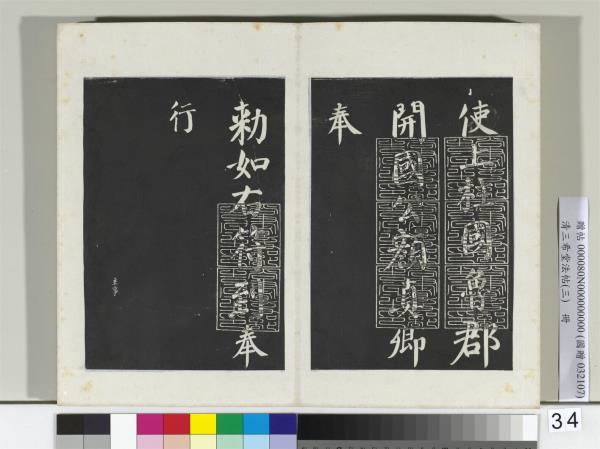 使上柱國魯郡
開國公顏真卿
奉
勑如右符到奉
行
贈帖 000080N000000000 (國贈 032107)
清三希堂法帖(三) 冊
34